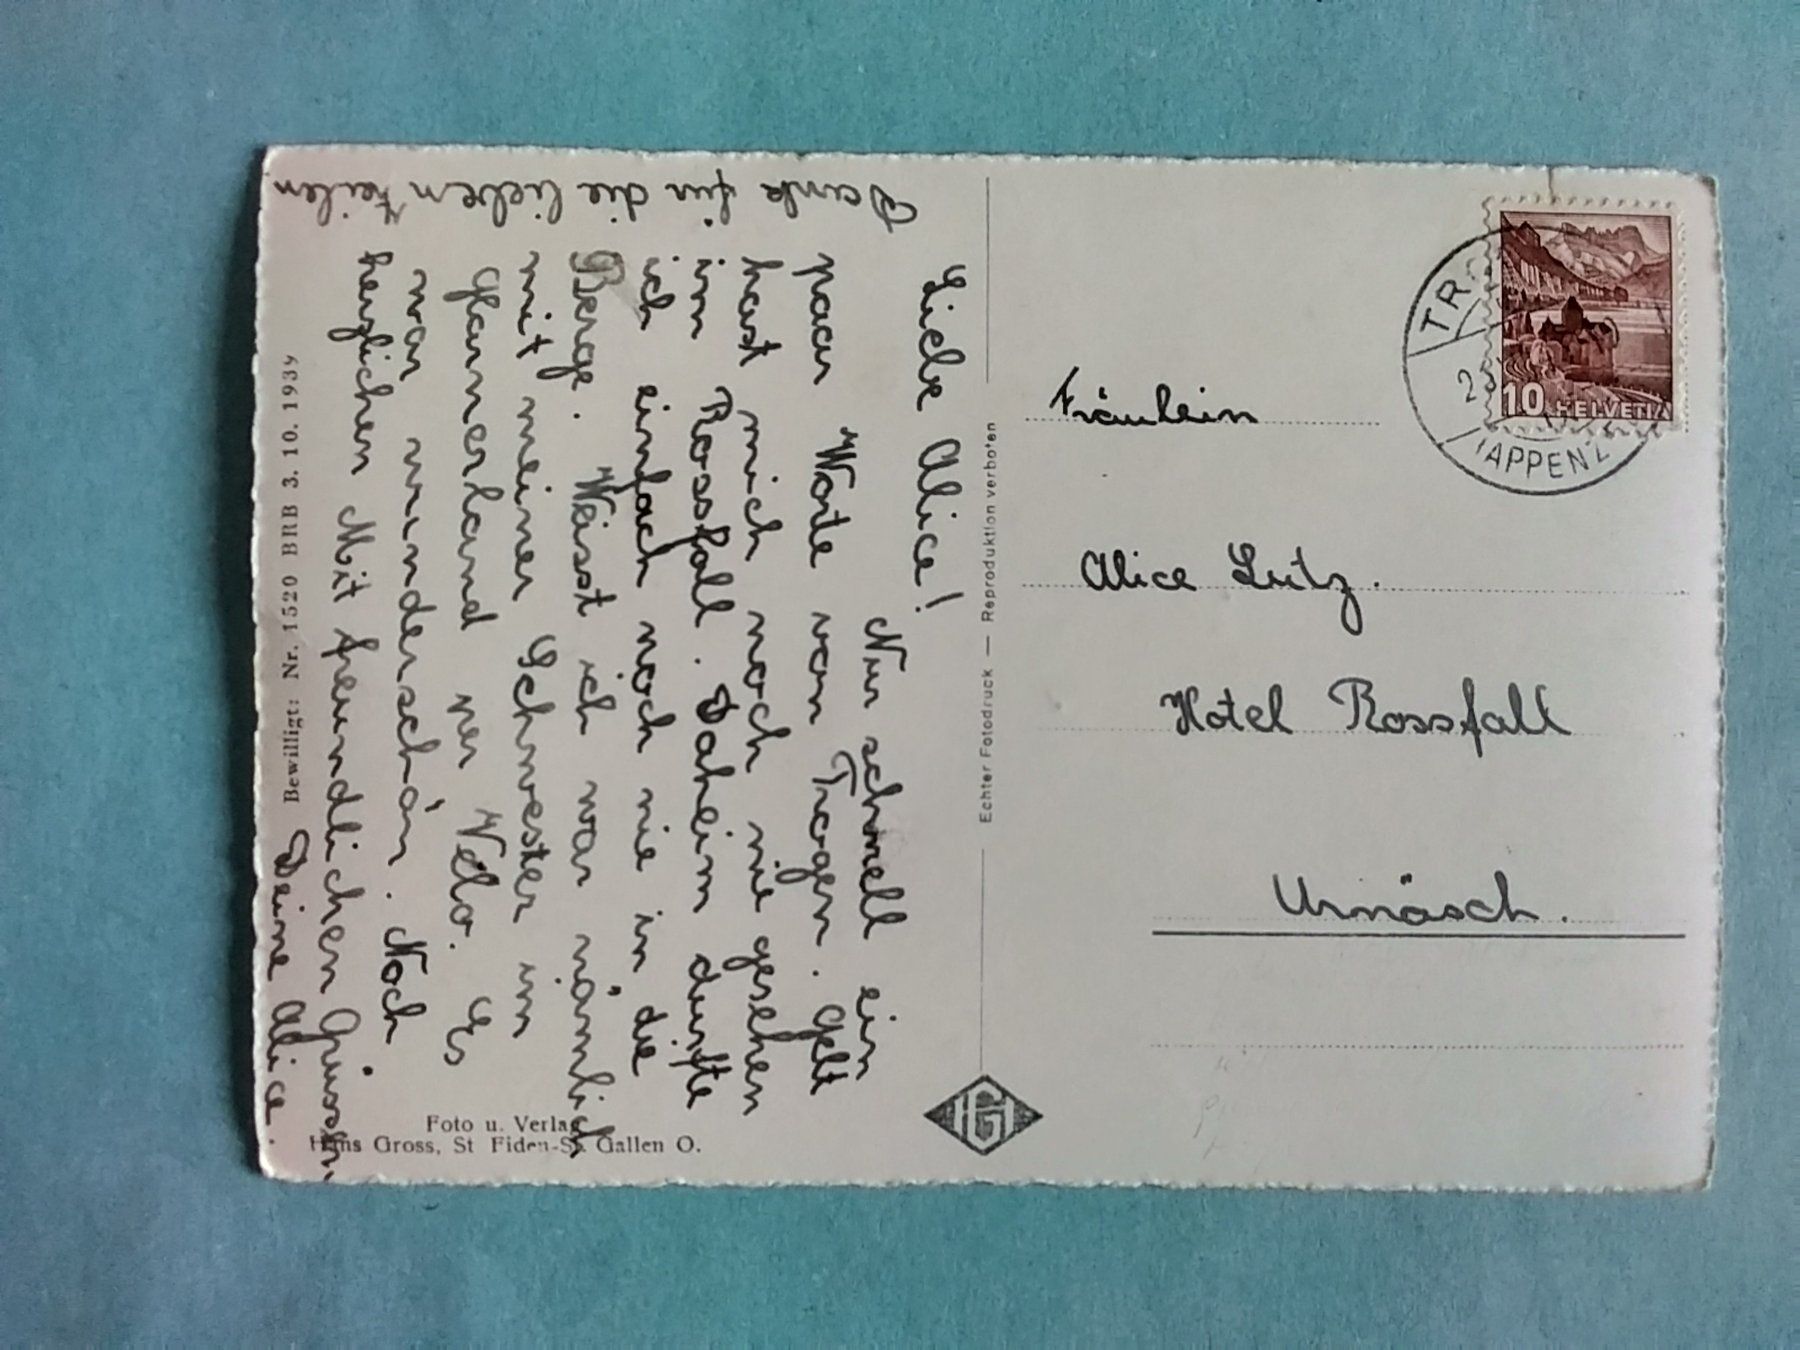 Liebe Alice!
Nur schnell ein
paar Worte von Trogen. Gelt
hast mich noch nie gesehen
im Rossfall. Daheim durfte
ich einfach noch nie in die
Berge. Weisst ich war nämlich
mit meiner Schwester im
Glarnerland per Velo. Es
war wunderschön. Noch
herzlichen Mit freundlichen Grüssen
Deine Alice.
Danke für die lieben Zeilen
Bewilligt: Nr. 1520 BRB 3. 10. 1939
Foto u. Verlag
Hans Gross, St Fiden-St. Gallen O.
Echter Fotodruck — Reproduktion verboten
Fräulein
Alice Lutz.
Hotel Rossfall
Urnäsch.
10 HELVETIA
(APPENZ